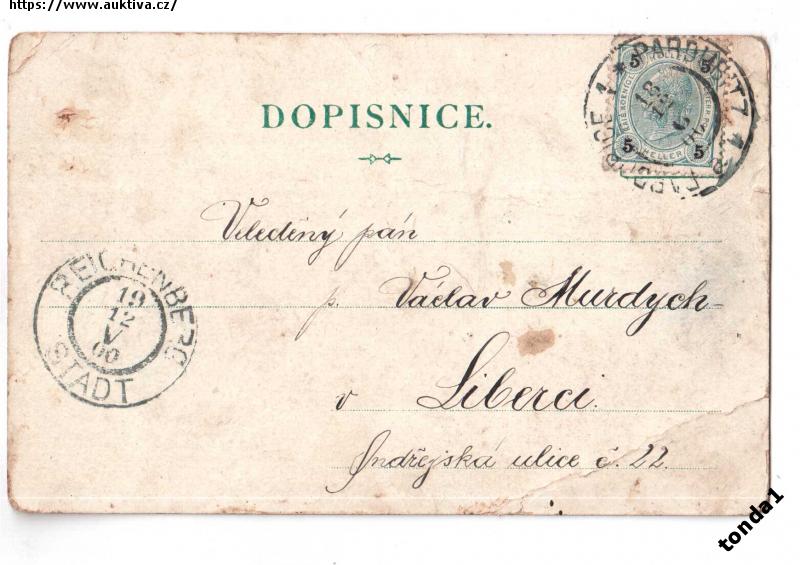 https://www.auktiva.cz/
DOPISNICE.
PARDUBITZ 1
PARDUBICE 1
5 5
5 HELLER 5
Veleděný pán
p. Václav Murdych
v Liberci.
Ondřejská ulice č. 22.
REICHENBERG
19
12
V
00
STADT
tonda1